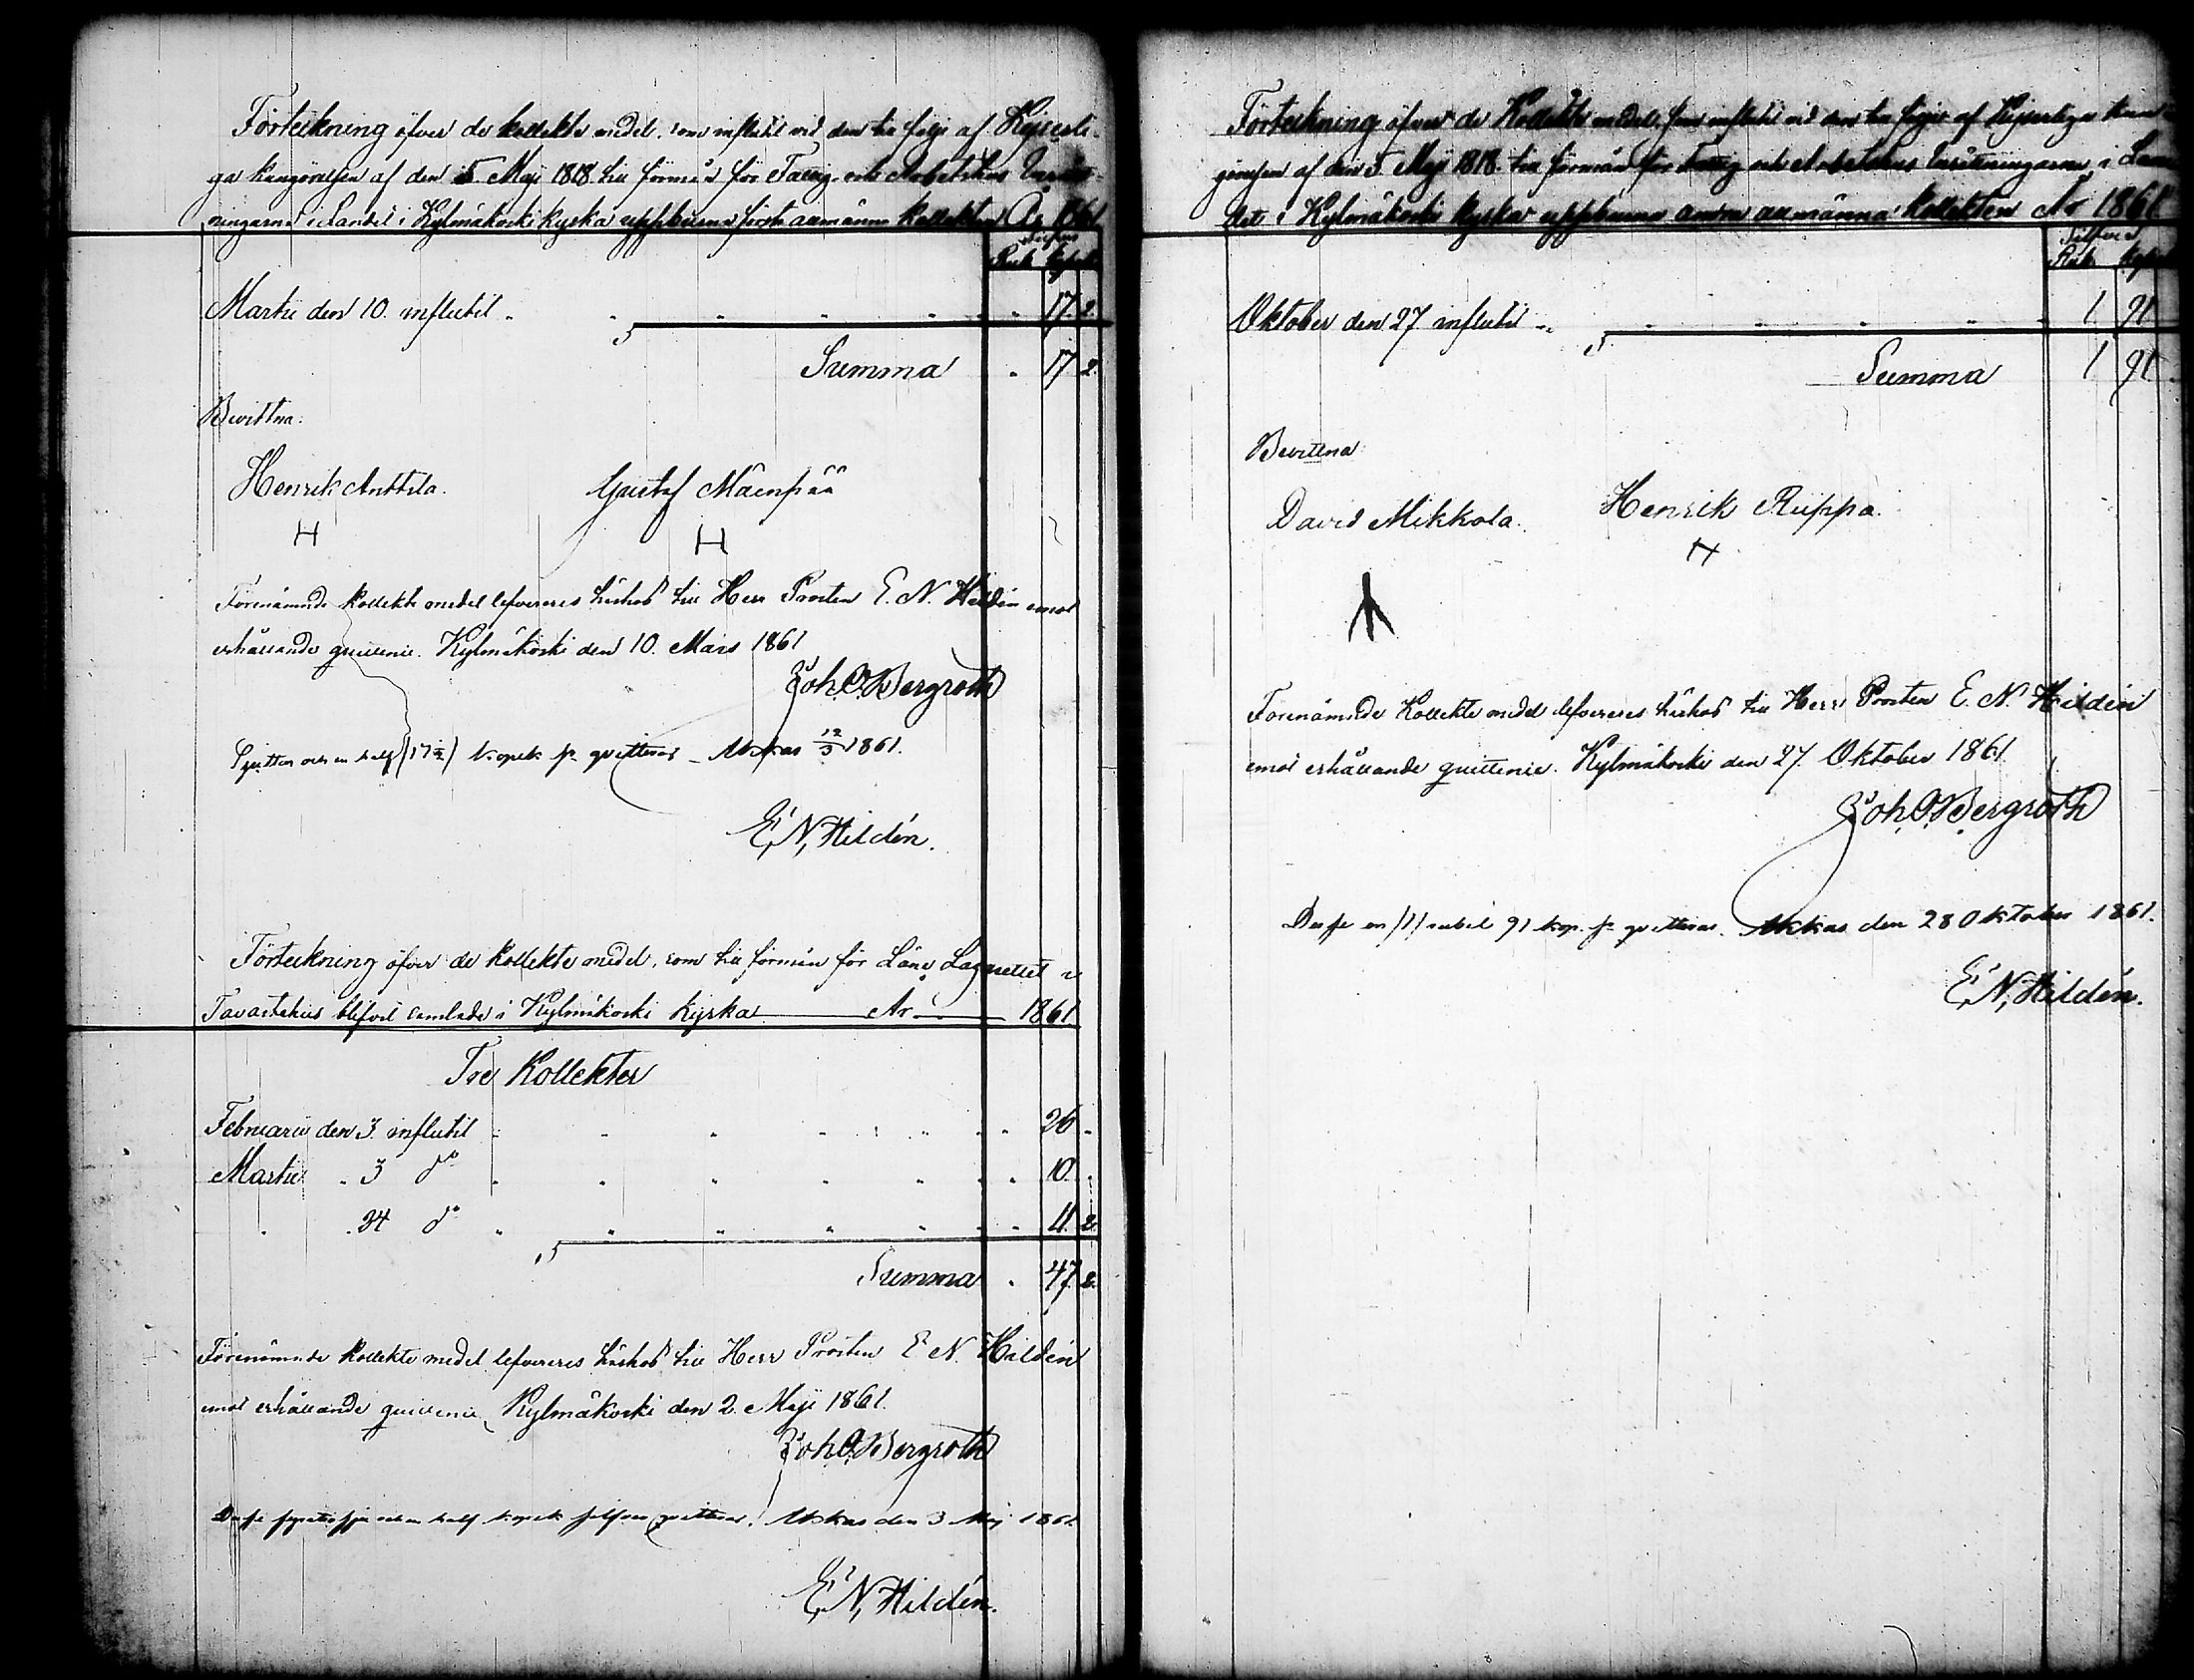 Förteckning öfver de kollekte medel, som influtit vid den till följe af Kejserli-
ga kungörelsen af den 5 Maji 1818 till förmån för Fattig- och Arbetshus Inrätt-
ningarne i Landet i Kylmäkoski kyrka uppburna första allmänna kollekten År 1861
Silfver
Rub. Kopek
Martii den 10. influtit 17. 2.
Summa 17 2.
Bevittna:
Henrik Anttila. Gustaf Mäenpää
H H
Förenämnde kollekte medel lefvereres härhos till Herr Prosten E. N. Hildén emot
erhållande quittence. Kylmäkoski den 10. Mars 1861
Joh. O. Bergroth
Sjutton och en half (17 1/2) kopek sr qvitteras – Akkas 12/3 1861.
E. N. Hildén.
Förteckning öfver de kollekte medel, som till förmån för Läns Lazarettet i
Tavastehus blifvit samlade i Kylmäkoski kyrka År 1861
Tre Kollekter
Februarii den 3. influtit 26 -
Martii " 3 do 10. -
" 24 do 11. 2.
Summa 47. 2.
Förenämnde kollekte medel lefvereres härhos till Herr Prosten E. N. Hildén
emot erhållande quittence, Kylmäkoski den 2. Maji 1861.
Joh. O. Bergroth
Desse fyratiosju och en half kopek silfver qvitteras. Akkas den 3 Maj 1861
E. N. Hildén.
Förteckning öfver de Kollekte medel, som influtit vid den till följe af Kejserliga kun-
görelsen af den 5 Maji 1818 till förmån för Fattig och Arbetshus Inrättningarne i Lan-
det i Kylmäkoski Kyrka uppburna andra allmänna Kollekten År 1861.
Silfver
Rub. Kopek
Oktober den 27 influtit 1 91
Summa 1 91
Bevittna
David Mikkola. Henrik Riippa.
Förenämnde Kollekte medel lefvereres härhos till Herr Prosten E. N. Hildén
emot erhållande quittence. Kylmäkoski den 27. Oktober 1861
Joh. O. Bergroth
Desse en /1/ rubel 91 kop. sr qvitteras. Akkas den 28 Oktober 1861.
E. N. Hildén.